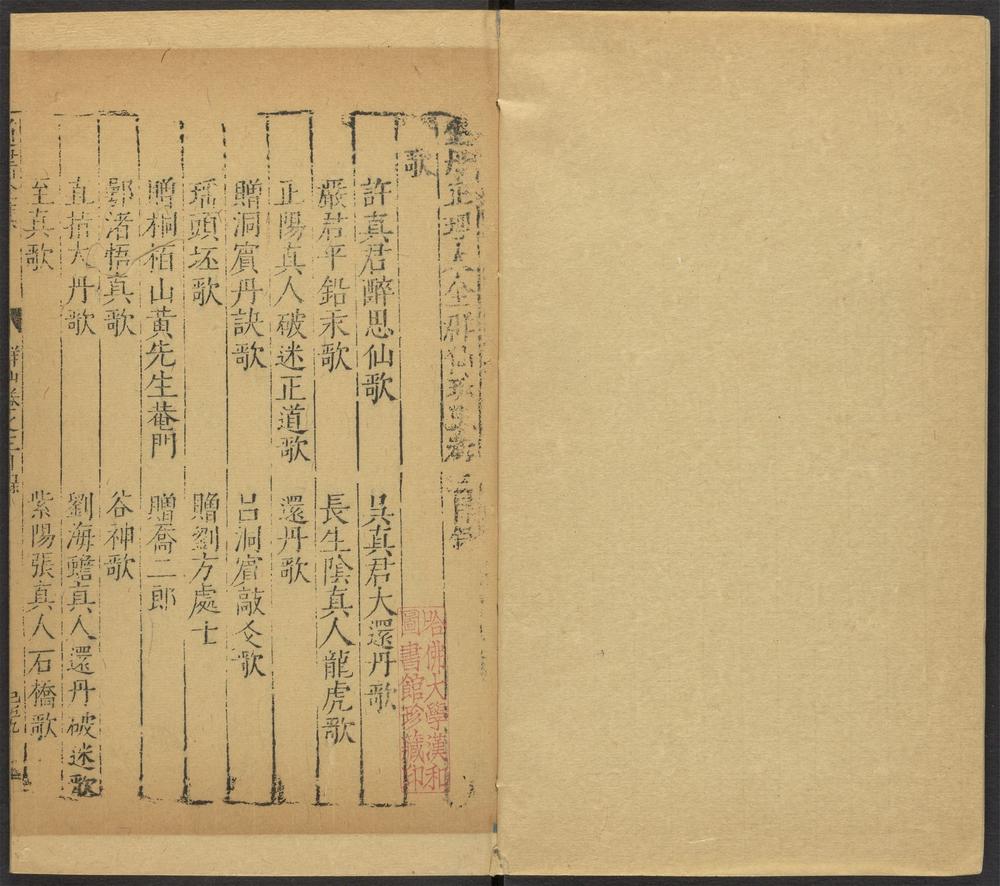 金丹正理大全群仙珠玉集
目錄
歌
許真君醉思仙歌
吳真君大還丹歌
嚴君平鉛汞歌
長生陰真人龍虎歌
正陽真人破迷正道歌
還丹歌
贈洞賓丹訣歌
呂洞賓敲爻歌
瑤頭坯歌
贈劉方處士
贈桐栢山黃先生菴門
贈喬二郎
鄂渚悟真歌
谷神歌
直指大丹歌
劉海蟾真人還丹破迷歌
至真歌
紫陽張真人石橋歌
哈佛大學漢和
圖書館珍藏印